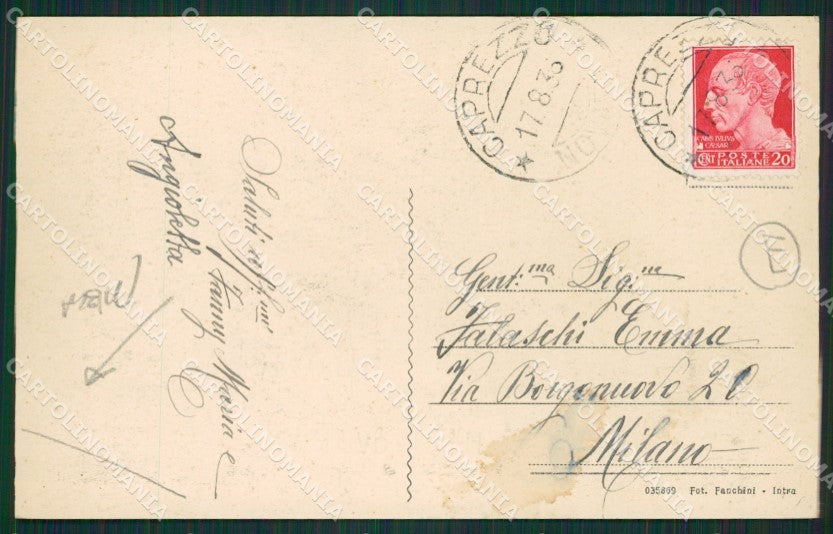 CAPREZZO
17.8.38
NO
CAPREZZO
17.8.38
CAIVS IVLIVS
CAESAR
CENT POSTE ITALIANE 20
Gent:ma Sig:na
Falaschi Emma
Via Borgonuovo 20
Milano
035869 Fot. Fanchini - Intra
Saluti aff.mi
Fanny Maria e
C
Angioletta
CARTOLINOMANIA